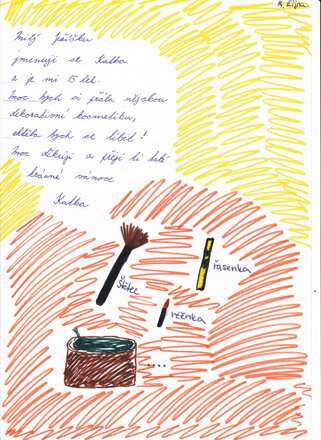 Milý Ježíšku
jmenuji se Katka
a je mi 15 let.
Moc bych si přála nějakou
dekorativní kosmetiku,
chtěla bych se líbit!
Moc děkuji a přeji ti také
krásné vánoce
Katka
řasenka
štětec
rtěnka
....